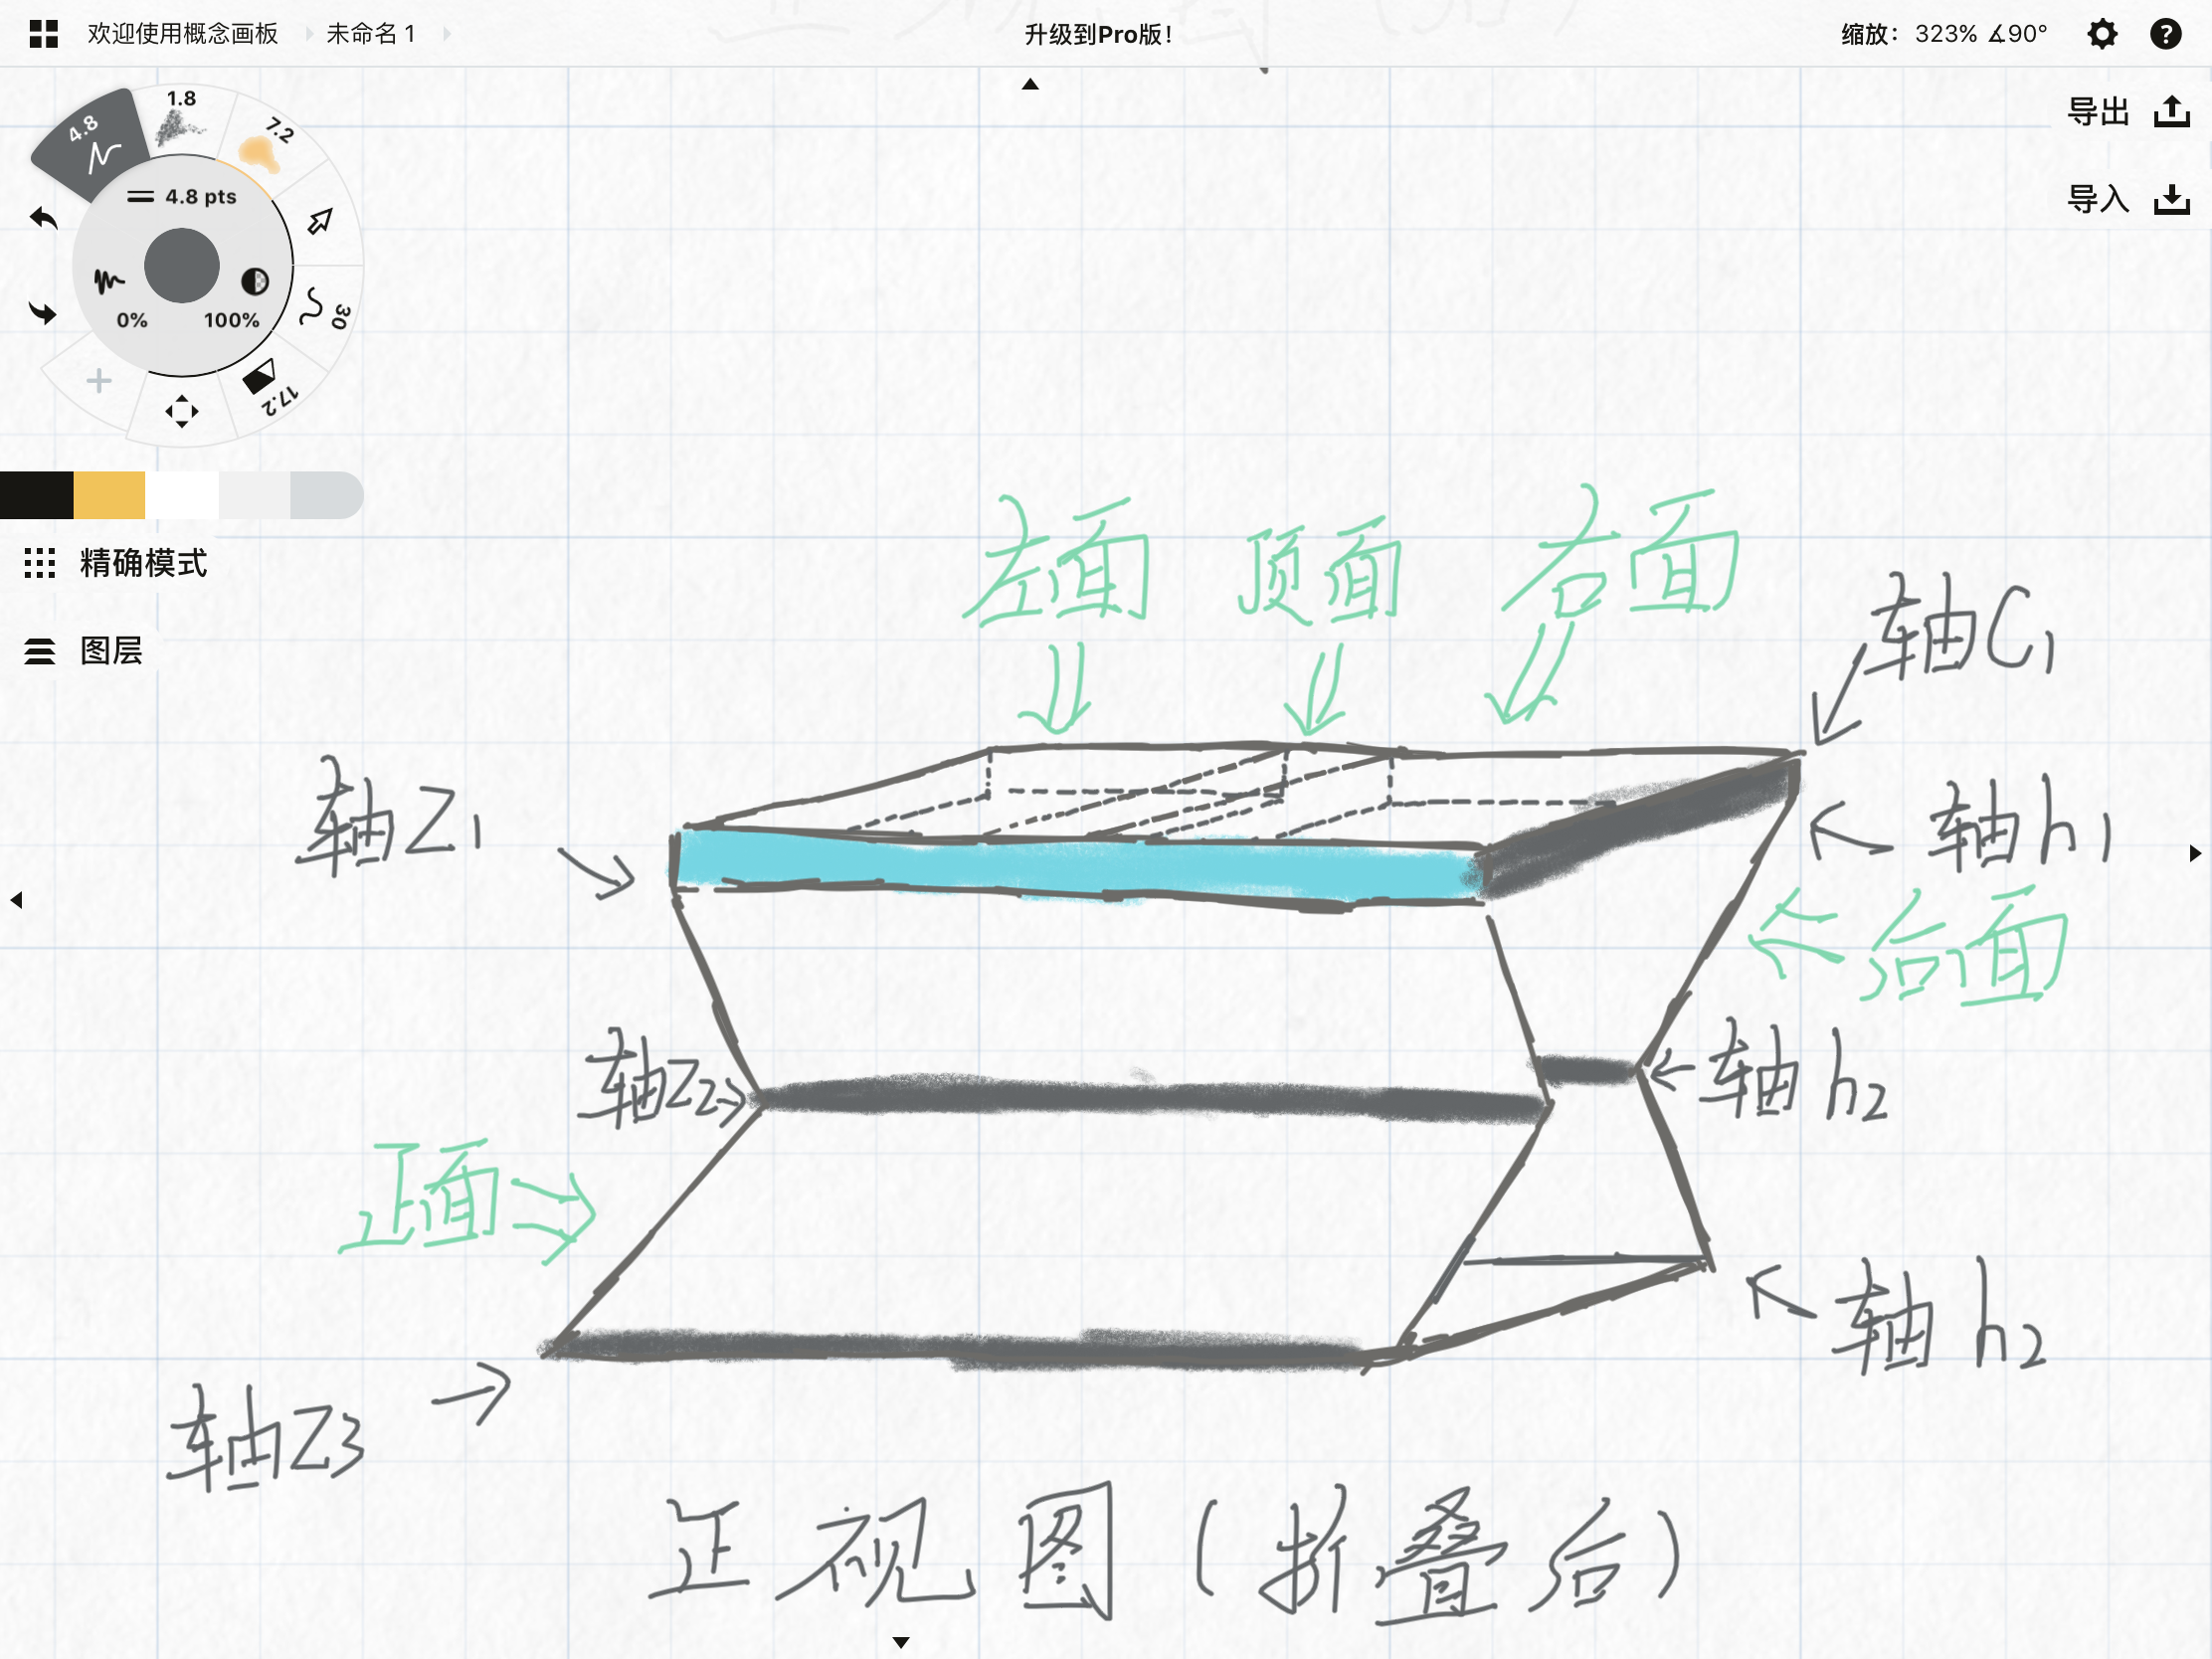 欢迎使用概念画板 未命名 1 升级到Pro版！ 缩放： 323% ∡90°
导出
导入
4.8 1.8 7.2
4.8 pts
30
0% 100%
17.2
精确模式
图层
左面 顶面 右面
轴C1
轴Z1
轴h1
后面
轴Z2
轴h2
正面
轴h2
轴Z3
正视图（折叠后）